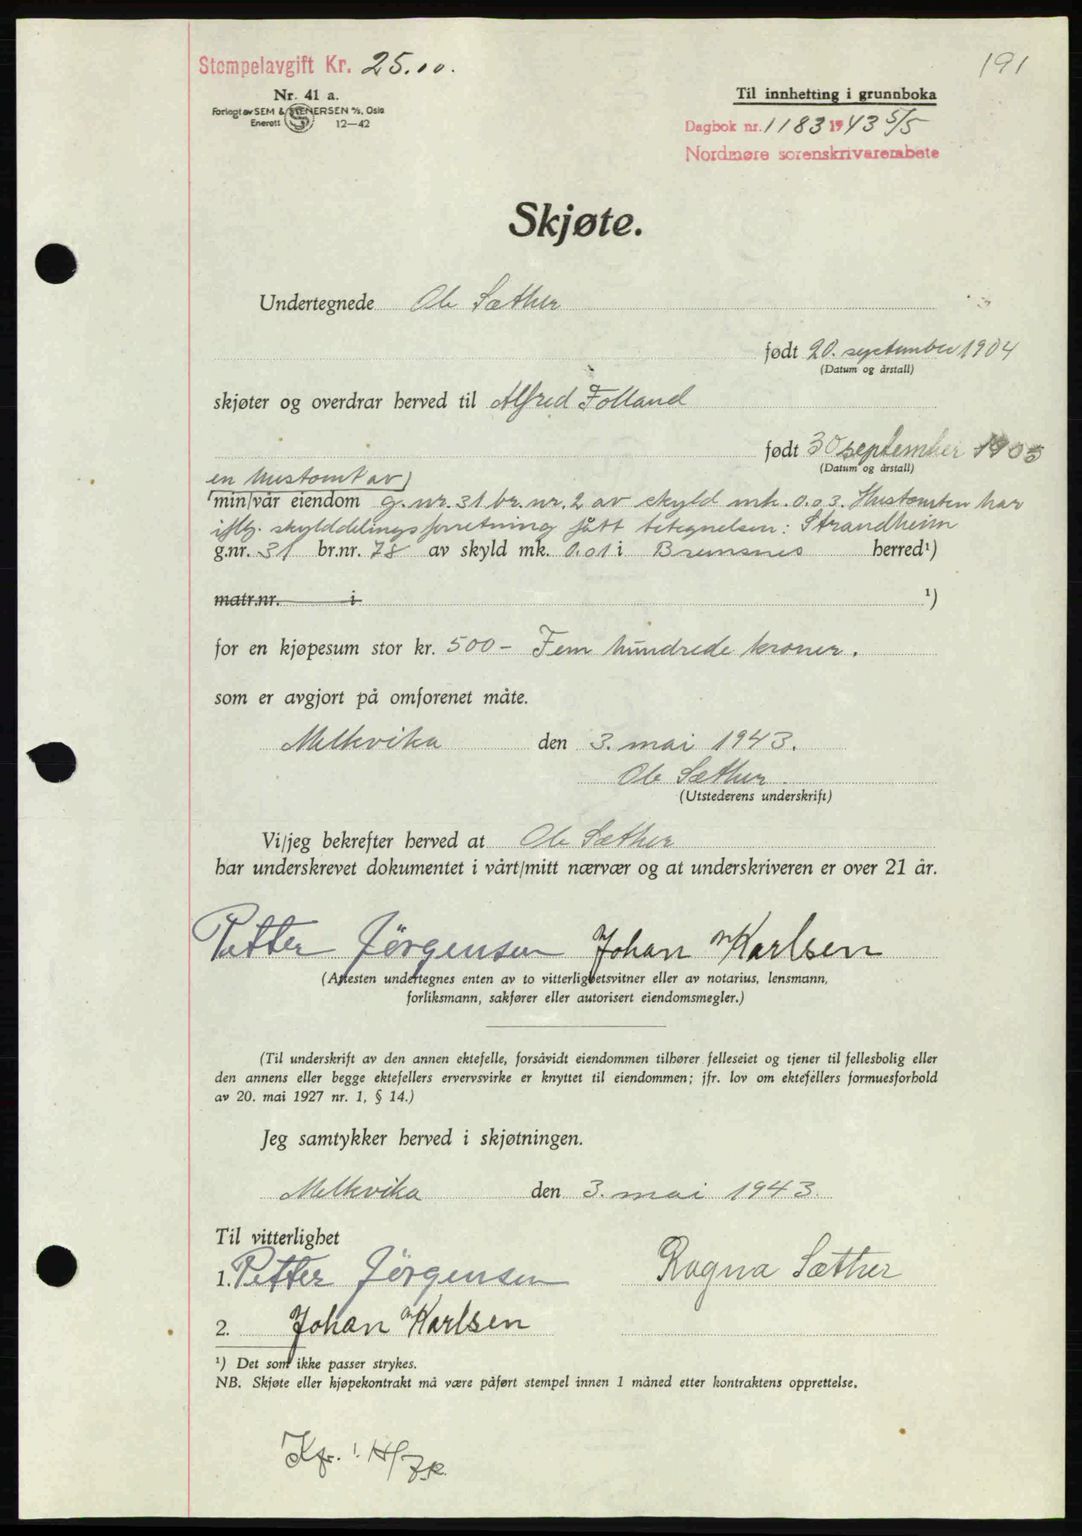 191
Stempelavgift Kr. 25.00.
Nr. 41 a.
Forlagt av SEM & STENERSEN A/S, Oslo
Enerett 12—42
Til innhetting i grunnboka
Dagbok nr. 1183 1943 5/5
Nordmøre sorenskrivarembete
Skjøte.
Undertegnede Ole Sæther
født 20. september 1904
(Datum og årstall)
skjøter og overdrar herved til Alfred Folland
født 30 september 1905
(Datum og årstall)
en hustomt av
min/vår eiendom g. nr. 31 br. nr. 2 av skyld mk. 0.03. Hustomten har
iflg. skylddelingsforretning fått betegnelsen: Strandheim
g.nr. 31 br.nr. 78 av skyld mk. 0.01 i Bremsnes herred¹)
matr.nr. i ¹)
for en kjøpesum stor kr. 500- Fem hundrede kroner.
som er avgjort på omforenet måte.
Melkvika den 3. mai 1943.
Ole Sæther.
(Utstederens underskrift)
Vi/jeg bekrefter herved at Ole Sæther
har underskrevet dokumentet i vårt/mitt nærvær og at underskriveren er over 21 år.
Petter Jörgensen Johan M Karlsen
(Attesten undertegnes enten av to vitterlighetsvitner eller av notarius, lensmann,
forliksmann, sakfører eller autorisert eiendomsmegler.)
(Til underskrift av den annen ektefelle, forsåvidt eiendommen tilhører felleseiet og tjener til fellesbolig eller
den annens eller begge ektefellers ervervsvirke er knyttet til eiendommen; jfr. lov om ektefellers formuesforhold
av 20. mai 1927 nr. 1, § 14.)
Jeg samtykker herved i skjøtningen.
Melkvika den 3. mai 1943.
Til vitterlighet
1. Petter Jörgensen Ragna Sæther
2. Johan M Karlsen
¹) Det som ikke passer strykes.
NB. Skjøte eller kjøpekontrakt må være påført stempel innen 1 måned etter kontraktens opprettelse.